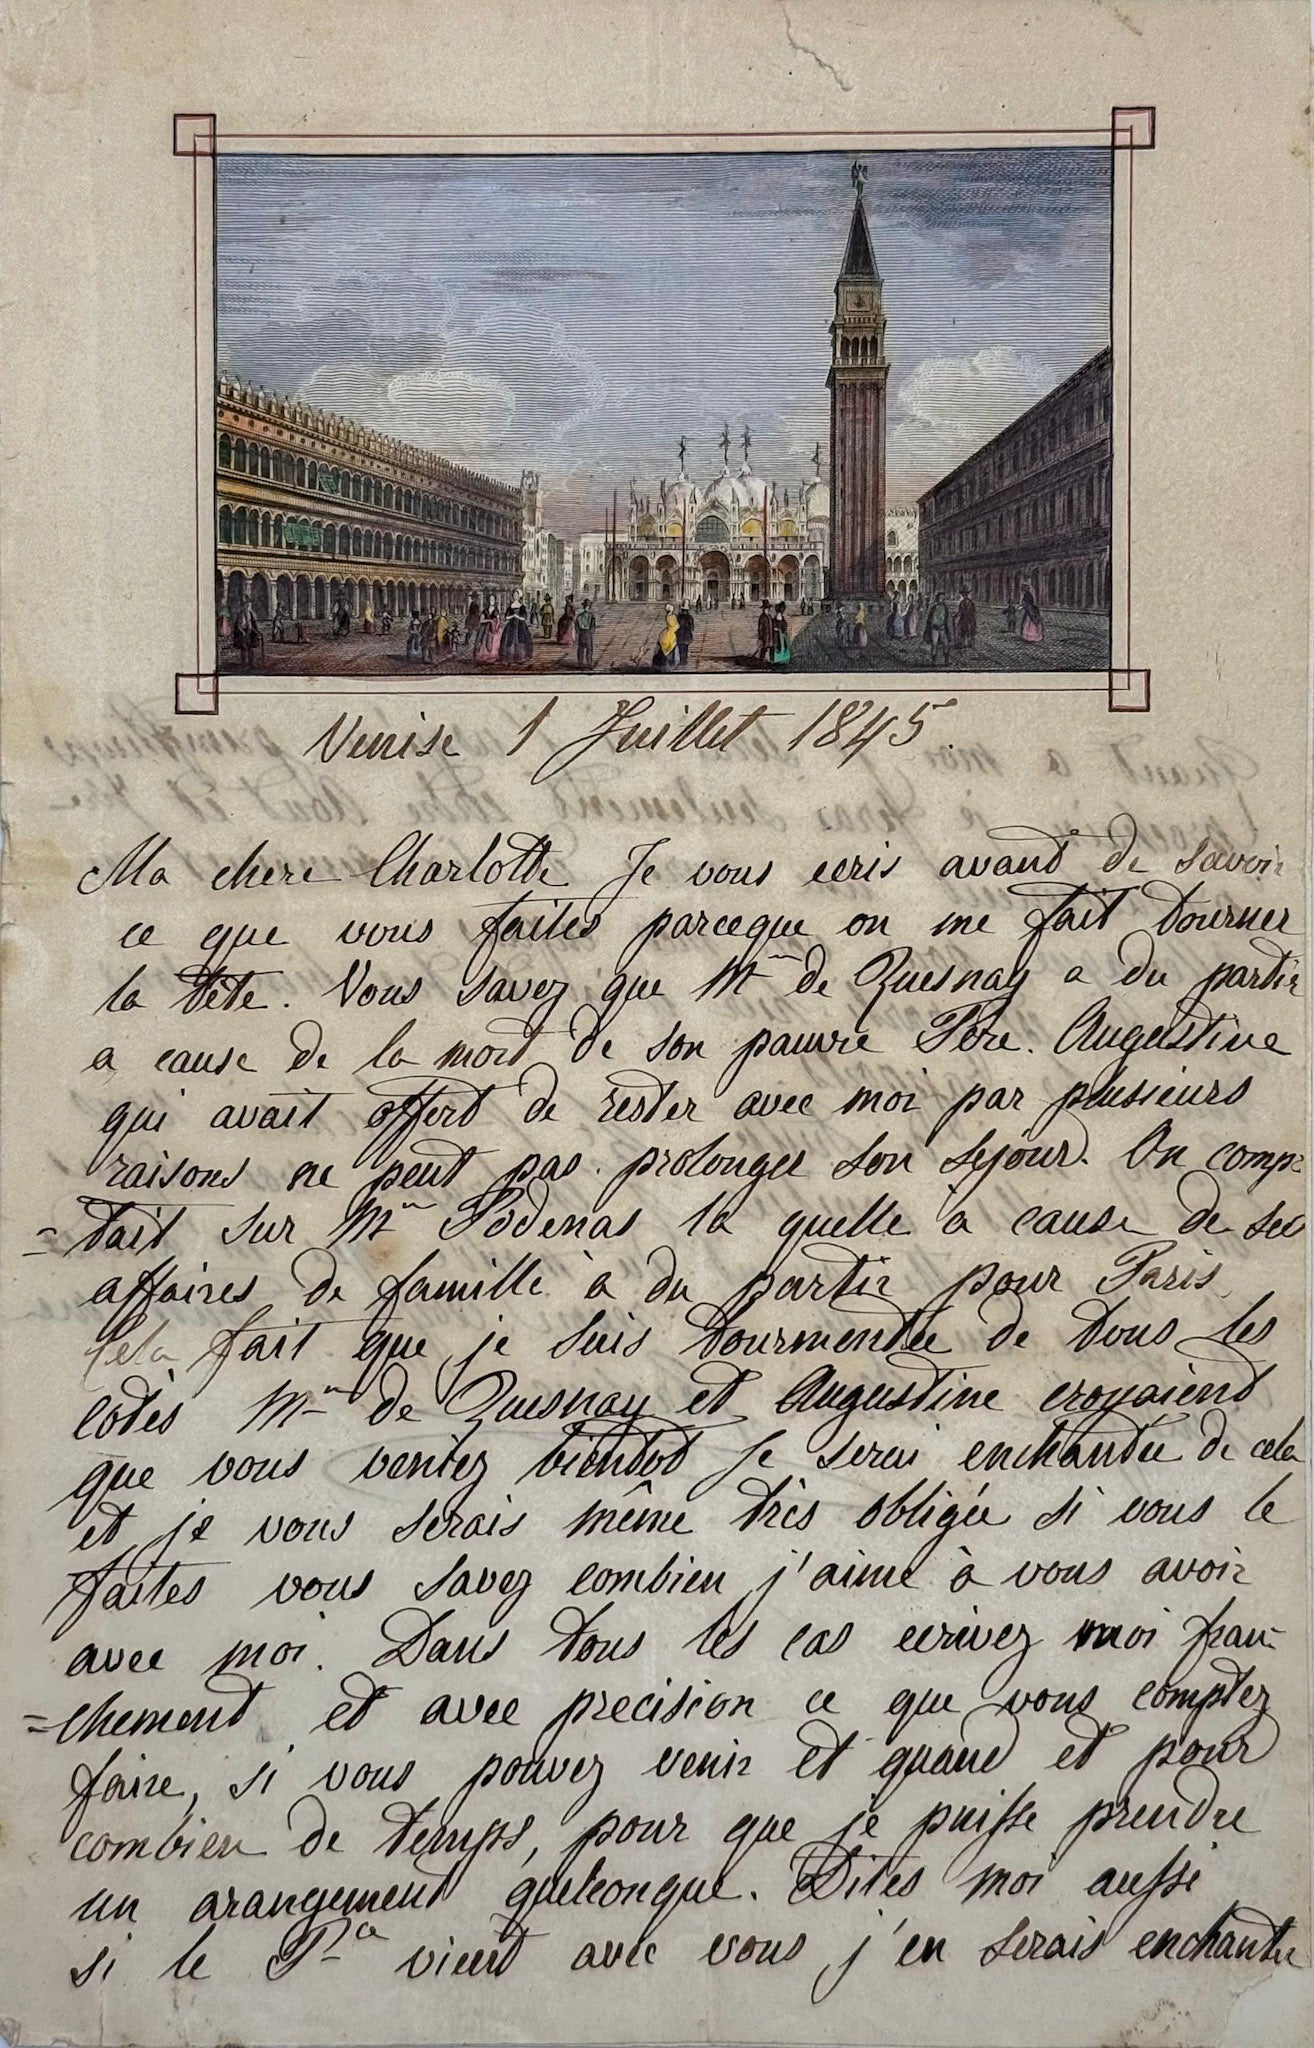 Venise 1 Juillet 1845.
Ma chere Charlotte Je vous ecris avant de savoir
ce que vous faites parceque on me fait tourner
la tête. Vous savez que Mme de Quesnay a du partir
a cause de la mort de son pauvre Père. Augustine
qui avait offert de rester avec moi par plusieurs
raisons ne peut pas prolonger son sejour. On comp-
=tait sur Mme Podenas la quelle a cause de ses
affaires de famille à du partir pour Paris,
Cela fait que je suis tourmentée de tous les
cotès Mme de Quesnay et Augustine croyaient
que vous veniez bientot Je serai enchantée de cela
et je vous serais même très obligée si vous le
faites vous savez combien j'aime à vous avoir
avec moi. Dans tous les cas ecrivez moi fran-
=chement et avec precision ce que vous comptez
faire, si vous pouvez venir et quand et pour
combien de temps, pour que je puisse prendre
un arangement quelconque. Dites moi aussi
si le Pce vient avec vous j'en serais enchantée